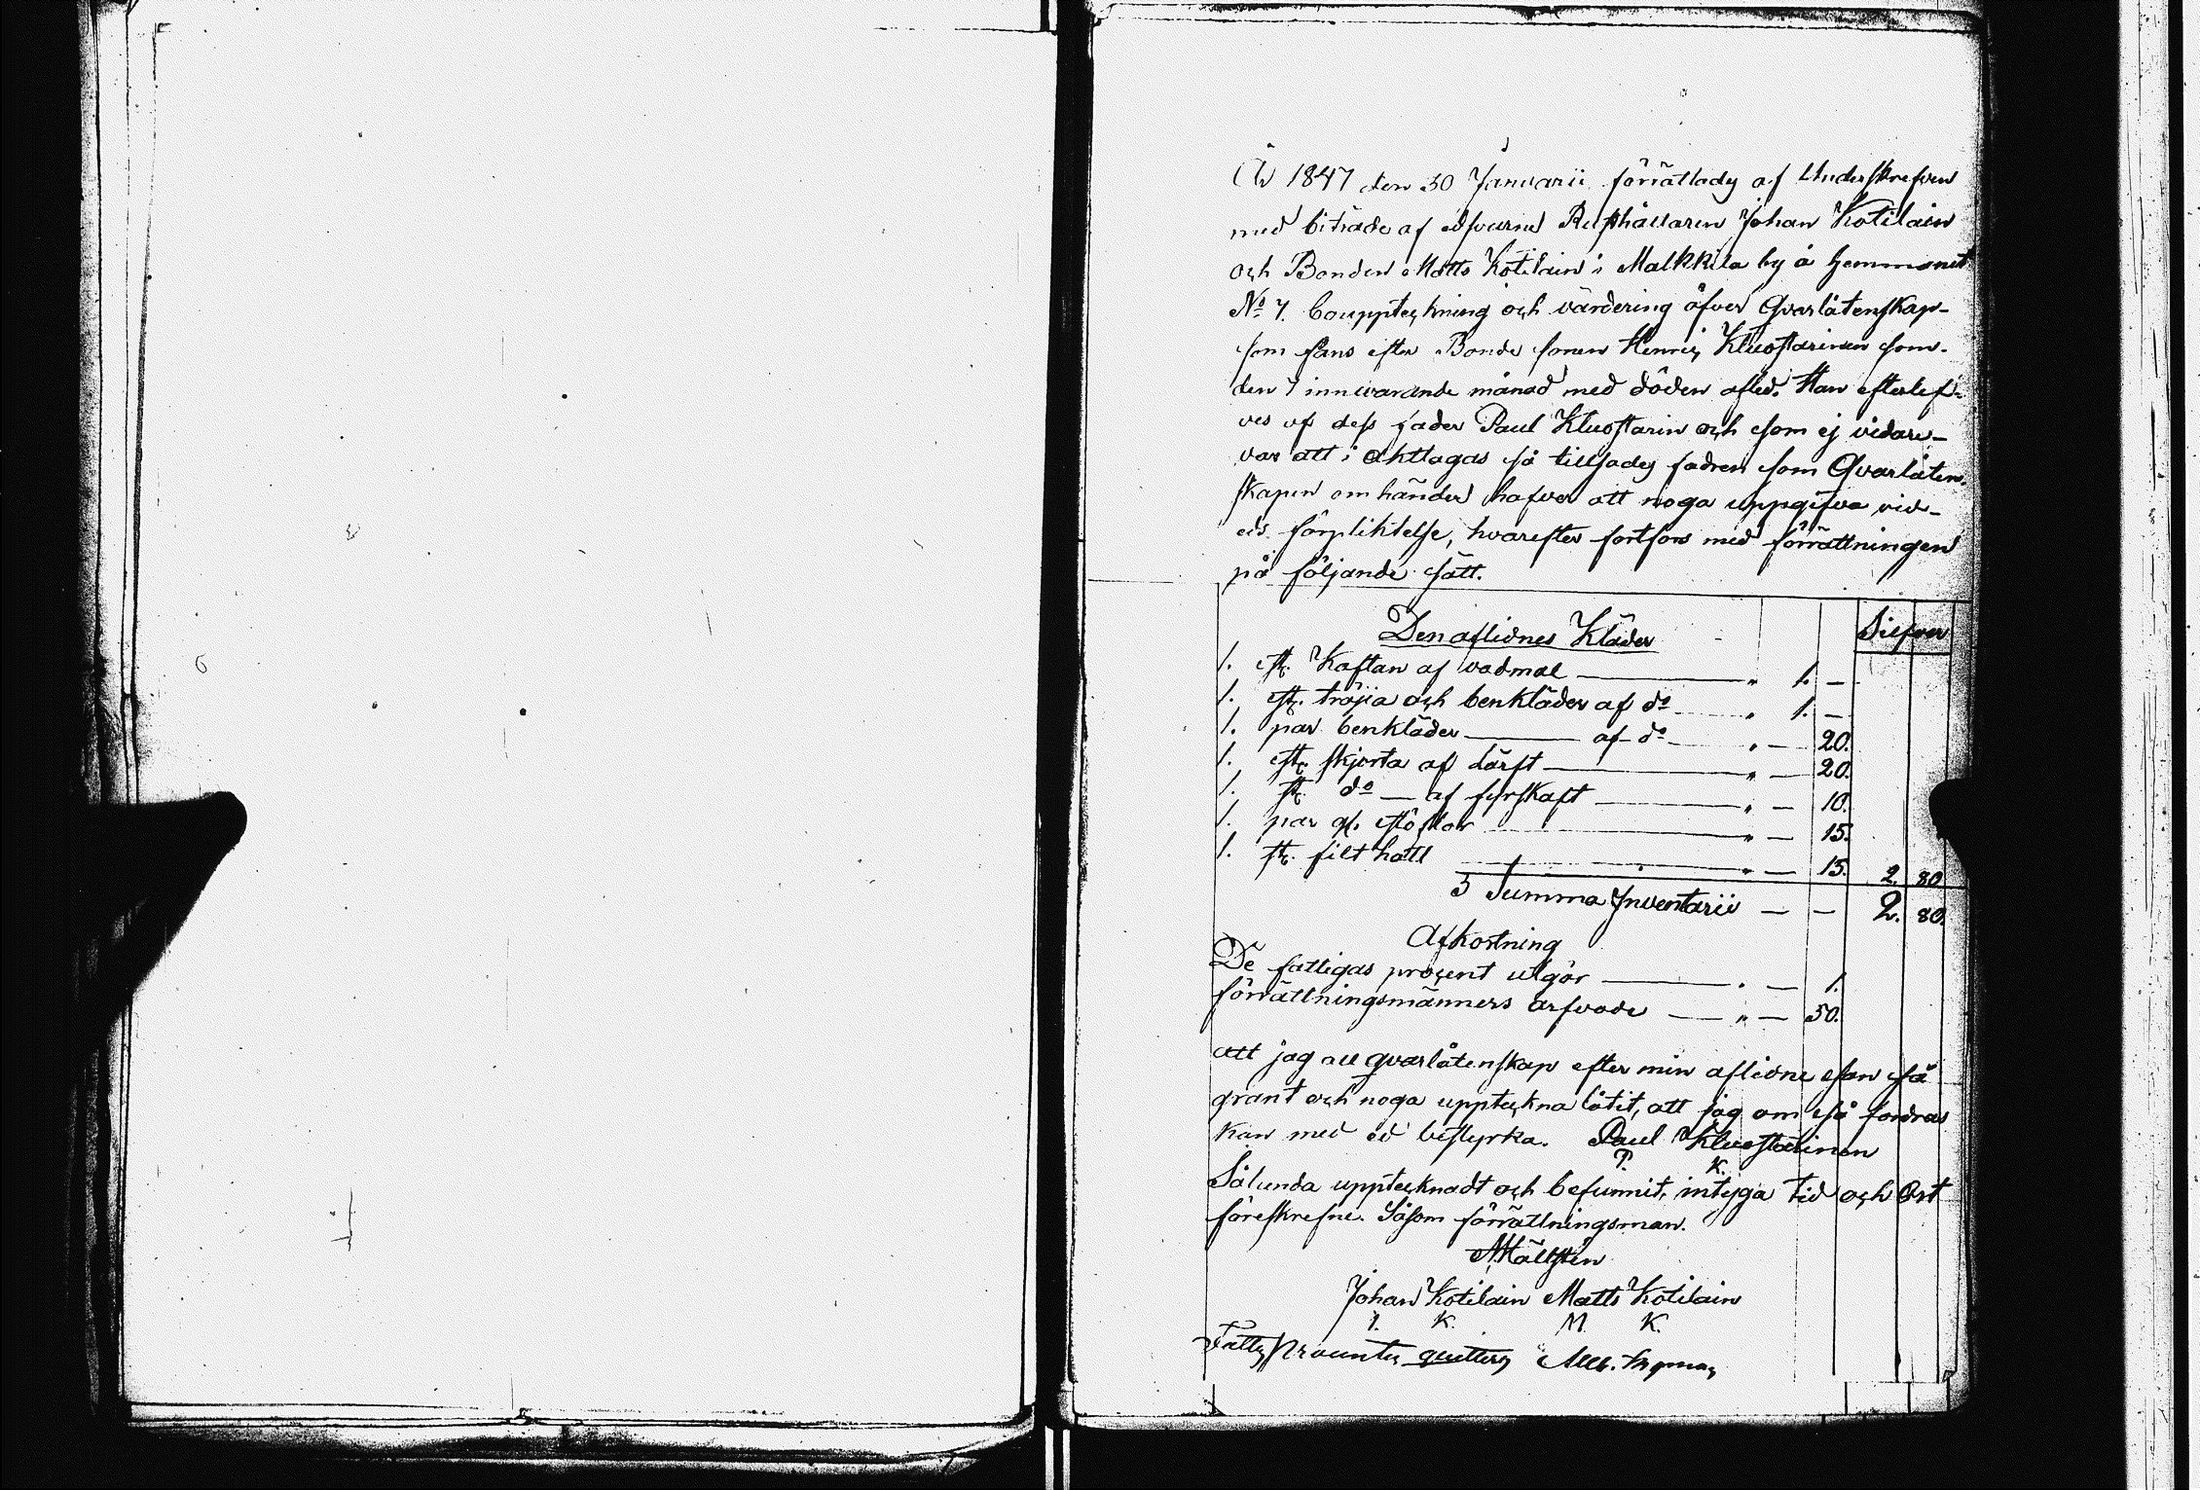 År 1847 den 30 Januarii förrättades af Underskrefven
med biträde af edsvurne Rusthållaren Johan Kotilain
och Bonden Matts Kotilain i Malkkila by å hemmanet
No 7. bouppteckning och värdering öfver Qvarlåtenskap-
som fans efter Bonde sonen Henric Kluostarinen som-
den 7 innevarande månad med döden afled. Han efterlef-
ves af dess fader Paul Kluostarin och som ej vidare-
var att i akttagas så tillsades fadren som Qvarlåten-
skapen om händer hafver att noga uppgifva vid-
eds förpliktelse, hvarefter fortfors med förrättningen
på följande sätt.
Den aflidnes Kläder Silfver
1. st. Kaftan af vadmal — " 1. —
1. st. tröjia och benkläder af do " 1. —
1. par benkläder — af do — " — 20.
1. st. skjorta af lärft — " — 20.
1. st. do — af fyrskaft — " — 10.
1. par gl. stöflor " — 15.
1. st. filt hatt — " — 15. 2. 80
Summa Inventarii — — 2. 80.
Afkortning
De fattigas procent utgör — " — 1.
förrättningsmänners arfvode — " — 50.
att jag all qvarlåtenskap efter min aflidne son så
grant och noga uppteckna låtit, att jag om så fordras
kan med ed bestyrka. Paul Kluostarinen
P. K.
Sålunda upptecknadt och befunnit, intyga tid och Ort
föreskrefne. Såsom förrättningsman.
Mällsten
Johan Kotilain Matts Kotilain
I. K. M. K.
Fattig procenten quitteras